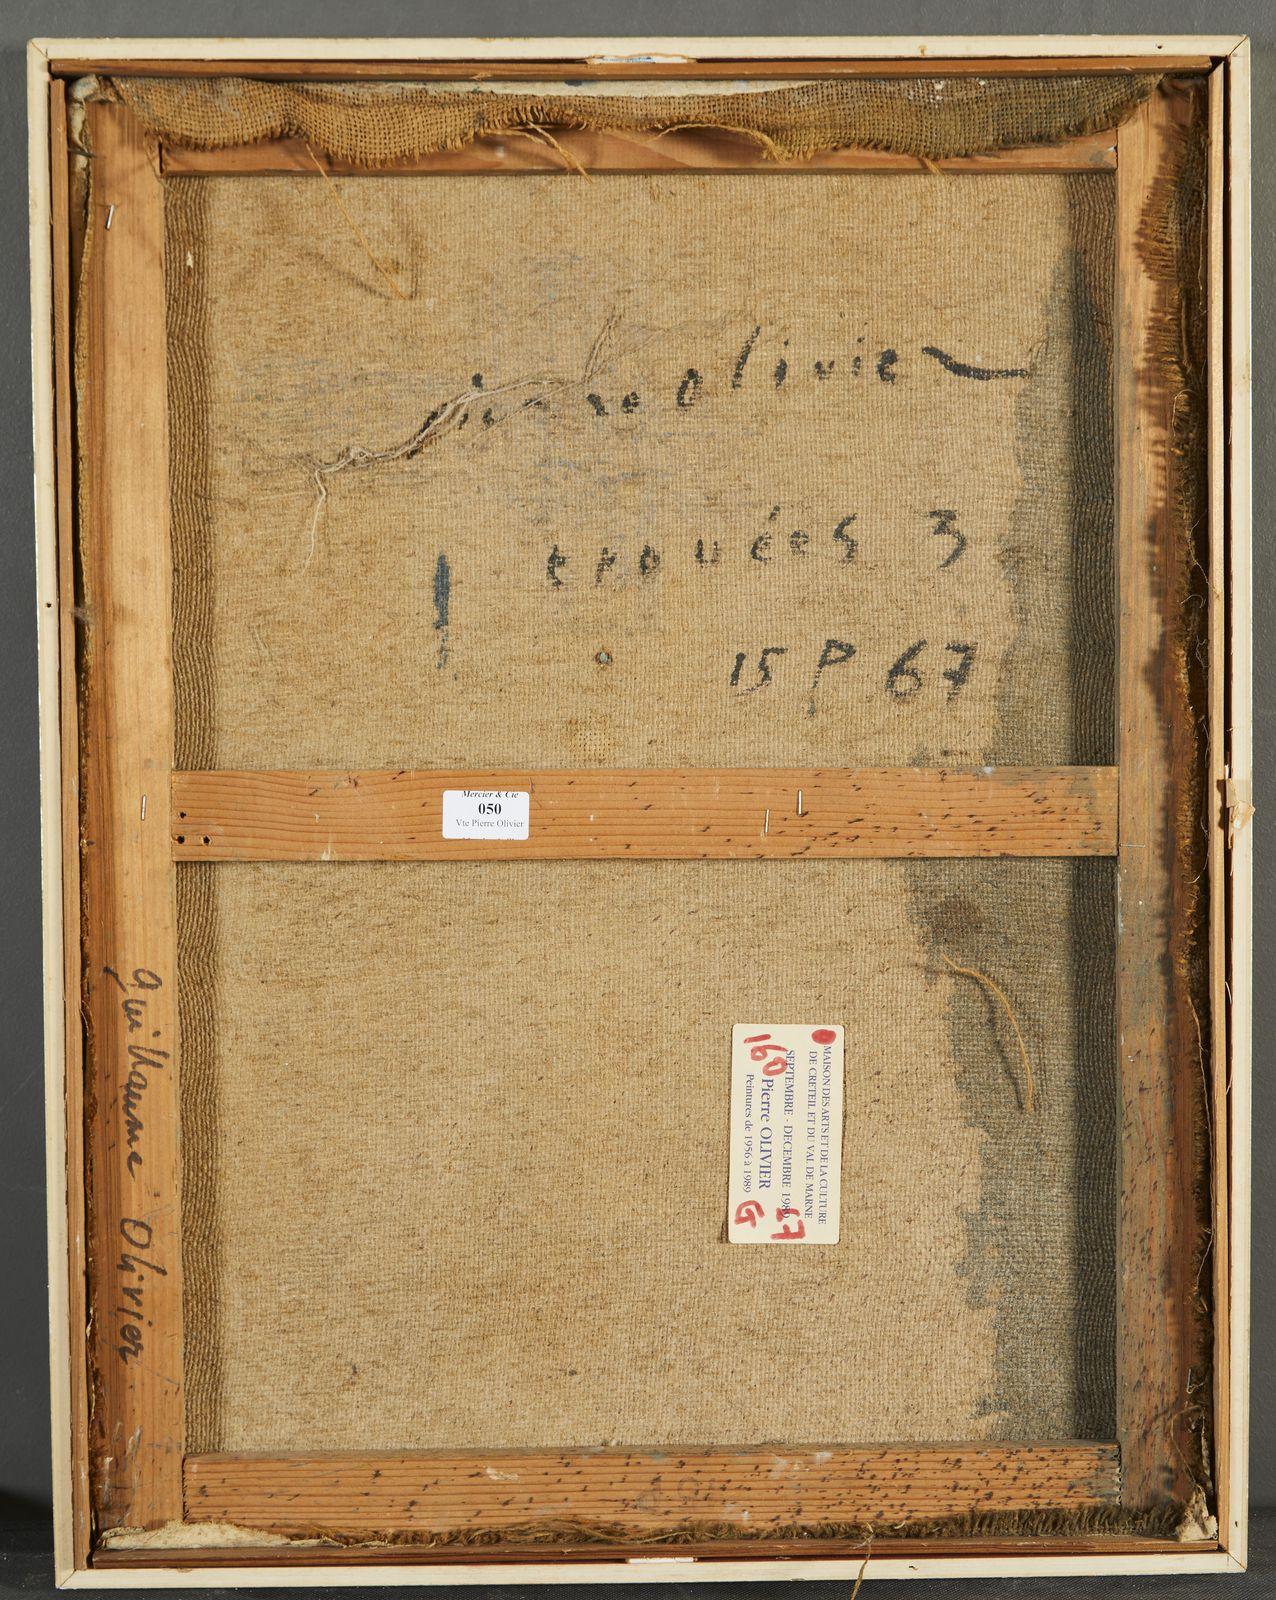 pierre olivier
trouées 3
15 P 67
Mercier & Cie
050
Vte Pierre Olivier
guillaume Olivier
MAISON DES ARTS ET DE LA CULTURE
DE CRETEIL ET DU VAL DE MARNE
SEPTEMBRE - DECEMBRE 1989
67
160
Pierre OLIVIER
Peintures de 1956 à 1989
G